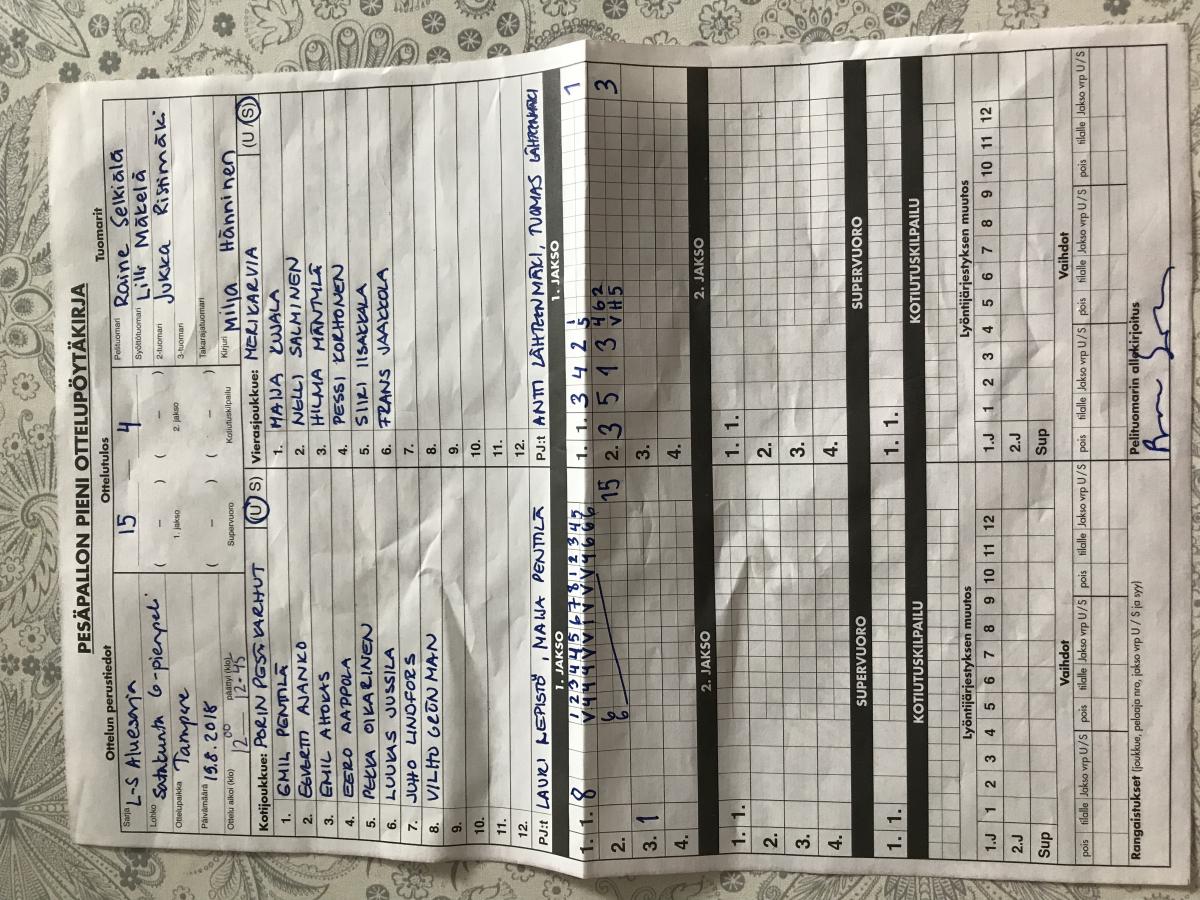 PESÄPALLON PIENI OTTELUPÖYTÄKIRJA
Ottelun perustiedot
Sarja L-S Aluesarja
Lohko Satakunta G-pienpeli
Ottelupaikka Tampere
Päivämäärä 19.8.2018
Ottelu alkoi (klo) 12.00 päättyi (klo) 12.45
Ottelutulos
15 — 4
( – ) ( – )
1. jakso 2. jakso
( – ) ( – )
Supervuoro Kotiutuskilpailu
Tuomarit
Pelituomari Raine Selkiälä
Syöttötuomari Lilli Mäkelä
2-tuomari Jukka Ristimäki
3-tuomari
Takarajatuomari
Kirjuri Milja Hänninen
Kotijoukkue: PORIN PESÄKARHUT (U S)
1. EMIL PENTILÄ
2. EEVERTI AJANKO
3. EMIL AHOKAS
4. EERO AAPPOLA
5. PEKKA OIKARINEN
6. LUUKAS JUSSILA
7. JUHO LINDFORS
8. VILHO GRÖNMAN
9.
10.
11.
12.
PJ:t LAURI LEPISTÖ, MAIJA PENTTILÄ
Vierasjoukkue: MERIKARVIA (U S)
1. MAIJA KUJALA
2. NELLI SALMINEN
3. HILMA MÄNTYLÄ
4. PESSI KORHONEN
5. SIIRI IISAKKALA
6. FRANS JAAKKOLA
7.
8.
9.
10.
11.
12.
PJ:t ANTTI LÄHTEENMÄKI, TUOMAS LÄHTEENMÄKI
1. JAKSO 1. JAKSO
1. 1. 8 1 2 3 4 4 5 6 7 8 1 2 3 4 5
1. 1. 3 4 2 5 1
2. 6 15
2. 3 5 1 3 4 6 2 3
V H 5
3. 1
3.
4.
4.
2. JAKSO 2. JAKSO
1. 1.
1. 1.
2.
2.
3.
3.
4.
4.
SUPERVUORO SUPERVUORO
1. 1.
1. 1.
KOTIUTUSKILPAILU KOTIUTUSKILPAILU
Lyöntijärjestyksen muutos Lyöntijärjestyksen muutos
1.J 1 2 3 4 5 6 7 8 9 10 11 12
1.J 1 2 3 4 5 6 7 8 9 10 11 12
2.J
2.J
Sup
Sup
Vaihdot Vaihdot
pois tilalle Jakso vrp U/S pois tilalle Jakso vrp U/S pois tilalle Jakso vrp U/S
pois tilalle Jakso vrp U/S pois tilalle Jakso vrp U/S pois tilalle Jakso vrp U/S
Rangaistukset (joukkue, pelaaja nro, jakso vrp U / S ja syy)
Pelituomarin allekirjoitus